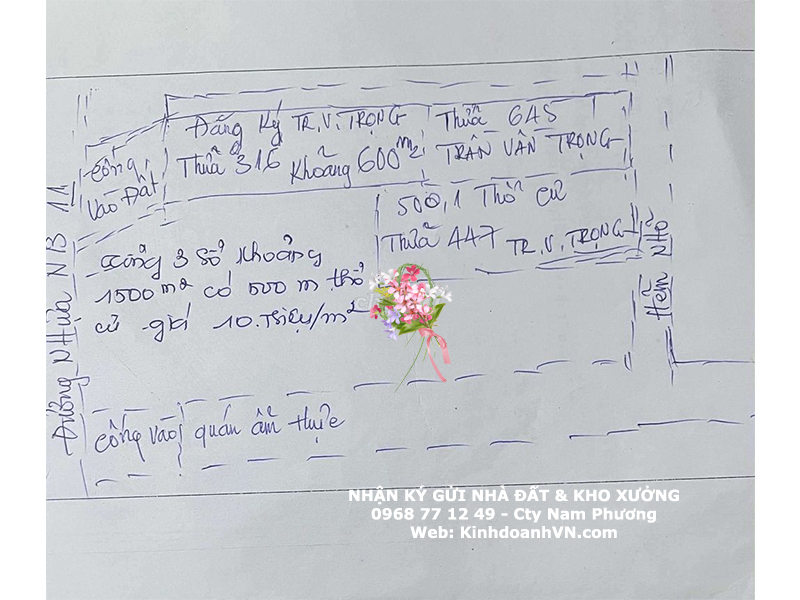 Đăng Ký TR.V.TRỌNG
Thửa 645
Thửa 316 Khoảng 600m2
TRẦN VĂN TRỌNG
cổng
vào Đất
500,1 Thổ cư
Thửa 447 TR.V.TRỌNG
cổng 3 sổ khoảng
1500m2 có 500 m thổ
cư giá 10.Triệu/m2
Đường NHựa NB 11
Hẻm Nhỏ
cổng vào quán ẩm thực
NHẬN KÝ GỬI NHÀ ĐẤT & KHO XƯỞNG
0968 77 12 49 - Cty Nam Phương
Web: KinhdoanhVN.com